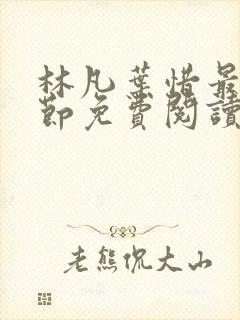 林凡葉惜最
節免費閱讀
老熊侃大山